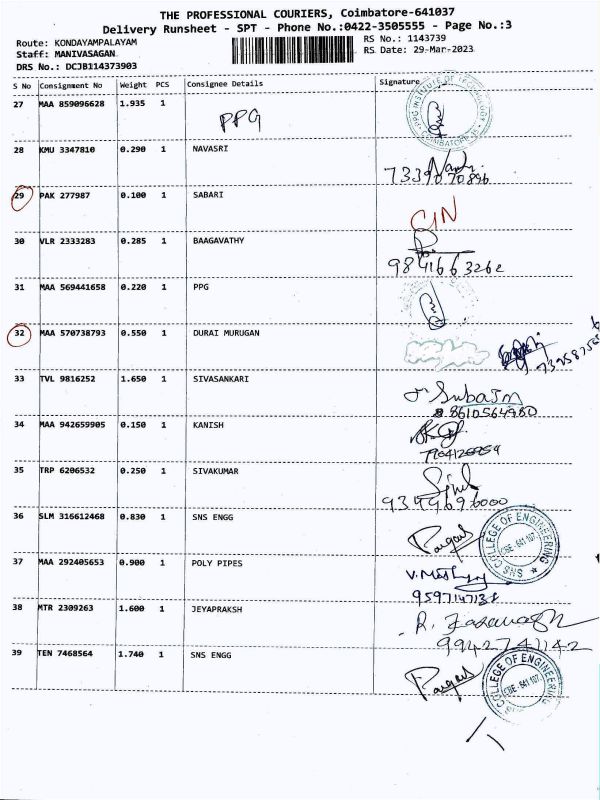 THE PROFESSIONAL COURIERS, Coimbatore-641037
Delivery Runsheet - SPT - Phone No.:0422-3505555 - Page No.:3
Route: KONDAYAMPALAYAM
Staff: MANIVASAGAN.
DRS No.: DCJB114373903
RS No.: 1143739
RS Date: 29-Mar-2023
S No Consignment No Weight PCS Consignee Details Signature
27 MAA 859096628 1.935 1 PPG
PPG INSTITUTE OF TECHNOLOGY COIMBATORE
28 KMU 3347810 0.290 1 NAVASRI
7339070896
29 PAK 277987 0.100 1 SABARI
30 VLR 2333283 0.285 1 BAAGAVATHY
9841663262
31 MAA 569441658 0.220 1 PPG
32 MAA 570738793 0.550 1 DURAI MURUGAN
33 TVL 9816252 1.650 1 SIVASANKARI
8610564980
34 MAA 942659905 0.150 1 KANISH
35 TRP 6206532 0.250 1 SIVAKUMAR
9344696000
36 SLM 316612468 0.830 1 SNS ENGG
SNS COLLEGE OF ENGINEERING CBE - 641 107
37 MAA 292405653 0.900 1 POLY PIPES
9597147137
38 MTR 2309263 1.600 1 JEYAPRAKSH
9942741142
39 TEN 7468564 1.740 1 SNS ENGG
SNS COLLEGE OF ENGINEERING CBE - 641 107